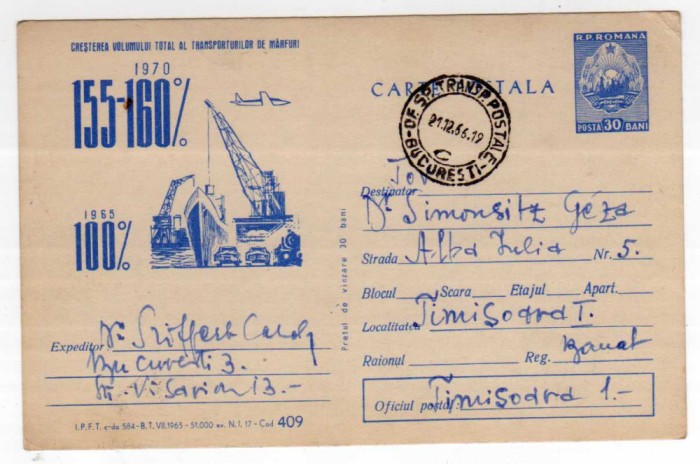 CREȘTEREA VOLUMULUI TOTAL AL TRANSPORTURILOR DE MĂRFURI
1970
155-160%
1965
100%
R.P. ROMANA
POSTA 30 BANI
CARTE POȘTALA
OF. SP. TRANSP. POSTALE
21.12.66.19
BUCUREȘTI
C
Tov.
Destinatar
Dr. Simonsitz Géza
Strada Alba Iulia Nr. 5.
Blocul Scara Etajul Apart.
Localitatea Timișoara I.
Raionul Reg. Banat
Oficiul poștal: Timișoara 1.-
Prețul de vînzare 30 bani
Expeditor Dr.
București 3.
Str. Visarion 13.-
I.P.F.T. c-da 584-B.T. VII.1965-51.000 ex. N.I. 17-Cod 409